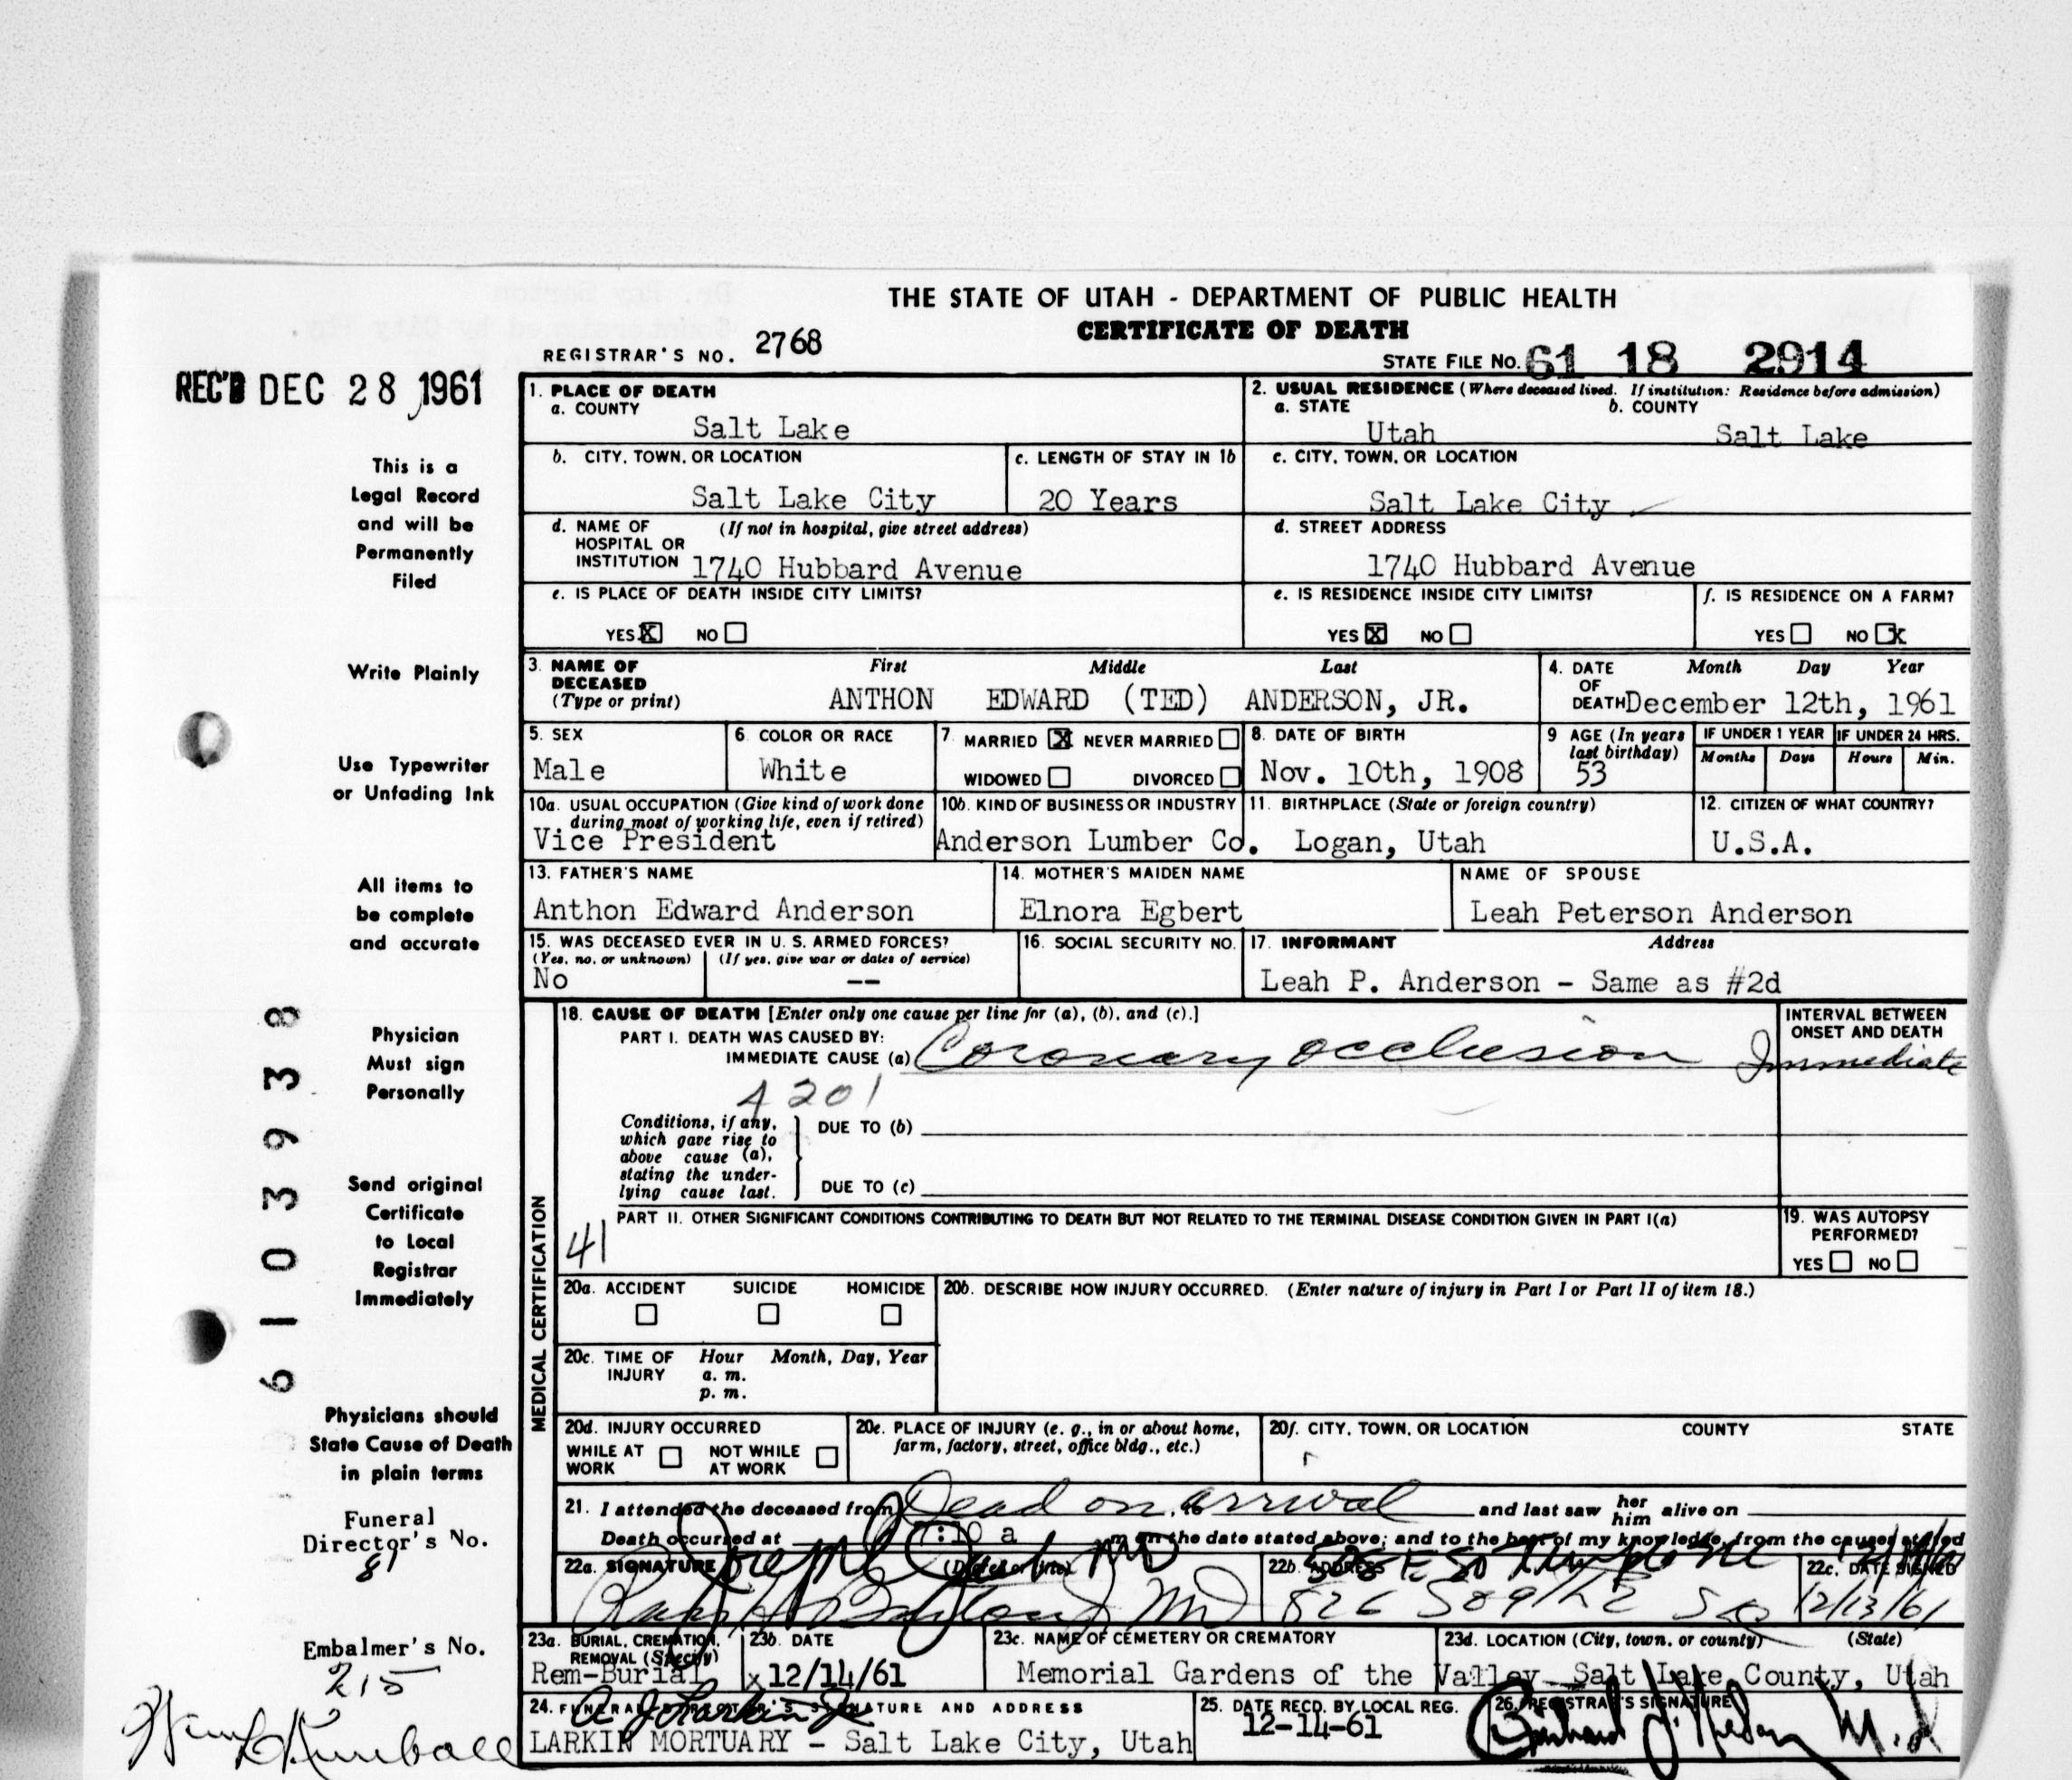 THE STATE OF UTAH - DEPARTMENT OF PUBLIC HEALTH
CERTIFICATE OF DEATH
REGISTRAR'S NO. 2768
STATE FILE NO. 61 18 2914
REC'D DEC 28 1961
This is a
Legal Record
and will be
Permanently
Filed
Write Plainly
Use Typewriter
or Unfading Ink
All items to
be complete
and accurate
Physician
Must sign
Personally
Send original
Certificate
to Local
Registrar
Immediately
Physicians should
State Cause of Death
in plain terms
Funeral
Director's No.
81
Embalmer's No.
215
Kimball
6103938
1. PLACE OF DEATH
a. COUNTY
Salt Lake
2. USUAL RESIDENCE (Where deceased lived. If institution: Residence before admission)
a. STATE b. COUNTY
Utah Salt Lake
b. CITY, TOWN, OR LOCATION
Salt Lake City
c. LENGTH OF STAY IN 1b
20 Years
c. CITY, TOWN, OR LOCATION
Salt Lake City
d. NAME OF (If not in hospital, give street address)
HOSPITAL OR
INSTITUTION 1740 Hubbard Avenue
d. STREET ADDRESS
1740 Hubbard Avenue
e. IS PLACE OF DEATH INSIDE CITY LIMITS?
YES X NO
e. IS RESIDENCE INSIDE CITY LIMITS?
YES X NO
f. IS RESIDENCE ON A FARM?
YES NO X
3. NAME OF First Middle Last
DECEASED
(Type or print) ANTHON EDWARD (TED) ANDERSON, JR.
4. DATE Month Day Year
OF
DEATH December 12th, 1961
5. SEX
Male
6. COLOR OR RACE
White
7. MARRIED X NEVER MARRIED
WIDOWED DIVORCED
8. DATE OF BIRTH
Nov. 10th, 1908
9 AGE (In years
last birthday)
53
IF UNDER 1 YEAR IF UNDER 24 HRS.
Months Days Hours Min.
10a. USUAL OCCUPATION (Give kind of work done
during most of working life, even if retired)
Vice President
10b. KIND OF BUSINESS OR INDUSTRY
Anderson Lumber Co.
11. BIRTHPLACE (State or foreign country)
Logan, Utah
12. CITIZEN OF WHAT COUNTRY?
U.S.A.
13. FATHER'S NAME
Anthon Edward Anderson
14. MOTHER'S MAIDEN NAME
Elnora Egbert
NAME OF SPOUSE
Leah Peterson Anderson
15. WAS DECEASED EVER IN U. S. ARMED FORCES?
(Yes, no, or unknown) (If yes, give war or dates of service)
No --
16. SOCIAL SECURITY NO.
17. INFORMANT Address
Leah P. Anderson - Same as #2d
MEDICAL CERTIFICATION
18. CAUSE OF DEATH [Enter only one cause per line for (a), (b), and (c).]
PART I. DEATH WAS CAUSED BY:
IMMEDIATE CAUSE (a) Coronary occlusion
INTERVAL BETWEEN
ONSET AND DEATH
Immediate
4201
Conditions, if any,
which gave rise to
above cause (a),
stating the under-
lying cause last.
DUE TO (b)
DUE TO (c)
PART II. OTHER SIGNIFICANT CONDITIONS CONTRIBUTING TO DEATH BUT NOT RELATED TO THE TERMINAL DISEASE CONDITION GIVEN IN PART I(a)
41
19. WAS AUTOPSY
PERFORMED?
YES NO
20a. ACCIDENT SUICIDE HOMICIDE
20b. DESCRIBE HOW INJURY OCCURRED. (Enter nature of injury in Part I or Part II of item 18.)
20c. TIME OF Hour Month, Day, Year
INJURY a. m.
p. m.
20d. INJURY OCCURRED
WHILE AT NOT WHILE
WORK AT WORK
20e. PLACE OF INJURY (e. g., in or about home,
farm, factory, street, office bldg., etc.)
20f. CITY, TOWN, OR LOCATION COUNTY STATE
21. I attended the deceased from Dead on arrival and last saw her him alive on
Death occurred at 7:10 a m on the date stated above; and to the best of my knowledge, from the causes stated
22a. SIGNATURE (Degree or title)
Joseph MD
MD
22b. ADDRESS
22c. DATE SIGNED
12/13/61
23a. BURIAL, CREMATION,
REMOVAL (Specify)
Rem-Burial
23b. DATE
x 12/14/61
23c. NAME OF CEMETERY OR CREMATORY
Memorial Gardens of the Valley
23d. LOCATION (City, town, or county) (State)
Salt Lake County, Utah
24. FUNERAL DIRECTOR'S SIGNATURE AND ADDRESS
A J Larkin Jr
LARKIN MORTUARY - Salt Lake City, Utah
25. DATE RECD. BY LOCAL REG.
12-14-61
26. REGISTRAR'S SIGNATURE
M.D